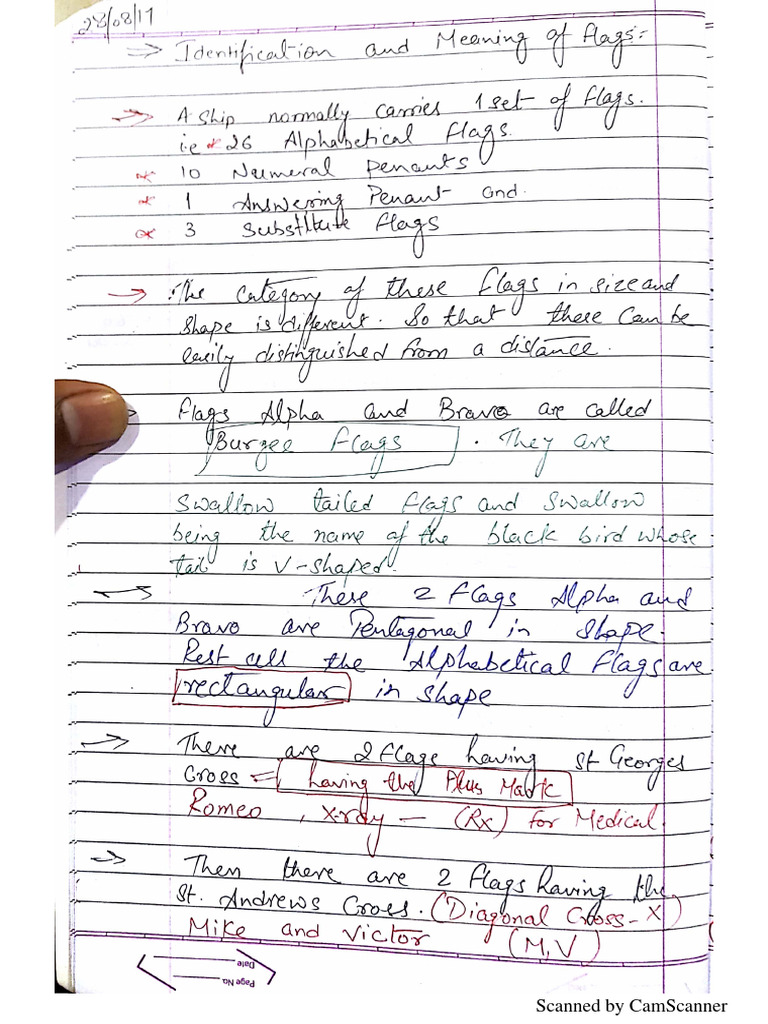 28/08/17
⇒ Identification and Meaning of flags:-
⇒ A ship normally carries 1 set of flags.
i.e * 26 Alphabetical flags.
* 10 Numeral Penants
* 1 Answering Penant and.
* 3 Substitute flags
→ The category of these flags in size and
shape is different. So that these can be
easily distinguished from a distance.
flags Alpha and Bravo are called
Burgee flags. They are
Swallow tailed flags and Swallow
being the name of the black bird whose
tail is V-shaped.
These 2 flags Alpha and
Bravo are Pentagonal in shape.
Rest all the Alphabetical flags are
rectangular in shape
⇒ There are 2 flags having st Georges
Cross = having the Plus Mark
Romeo, X-ray — (Rx) for Medical.
⇒ Then there are 2 flags having the
St. Andrews Cross. (Diagonal Cross - X)
Mike and Victor (M,V)
Page No.
Date
Scanned by CamScanner